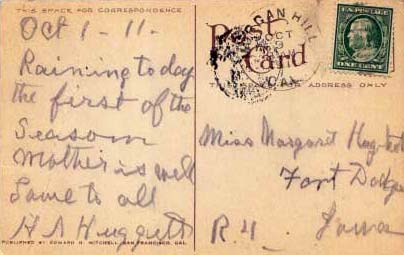 THIS SPACE FOR CORRESPONDENCE
Oct 1 - 11.
Raining today
the first of the
Season
Mother is well
Love to all
H A Huggett
PUBLISHED BY EDWARD H. MITCHELL, SAN FRANCISCO, CAL.
Post
Card
MORGAN HILL
OCT
CAL
ADDRESS ONLY
ONE CENT
Miss Margaret
Fort Dodge
R 4. Iowa